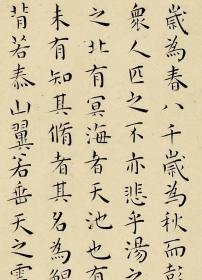 歲為春八千歲為秋而彭
衆人匹之不亦悲乎湯之
之北有冥海者天池也有
未有知其脩者其名為鯤
背若泰山翼若垂天之雲